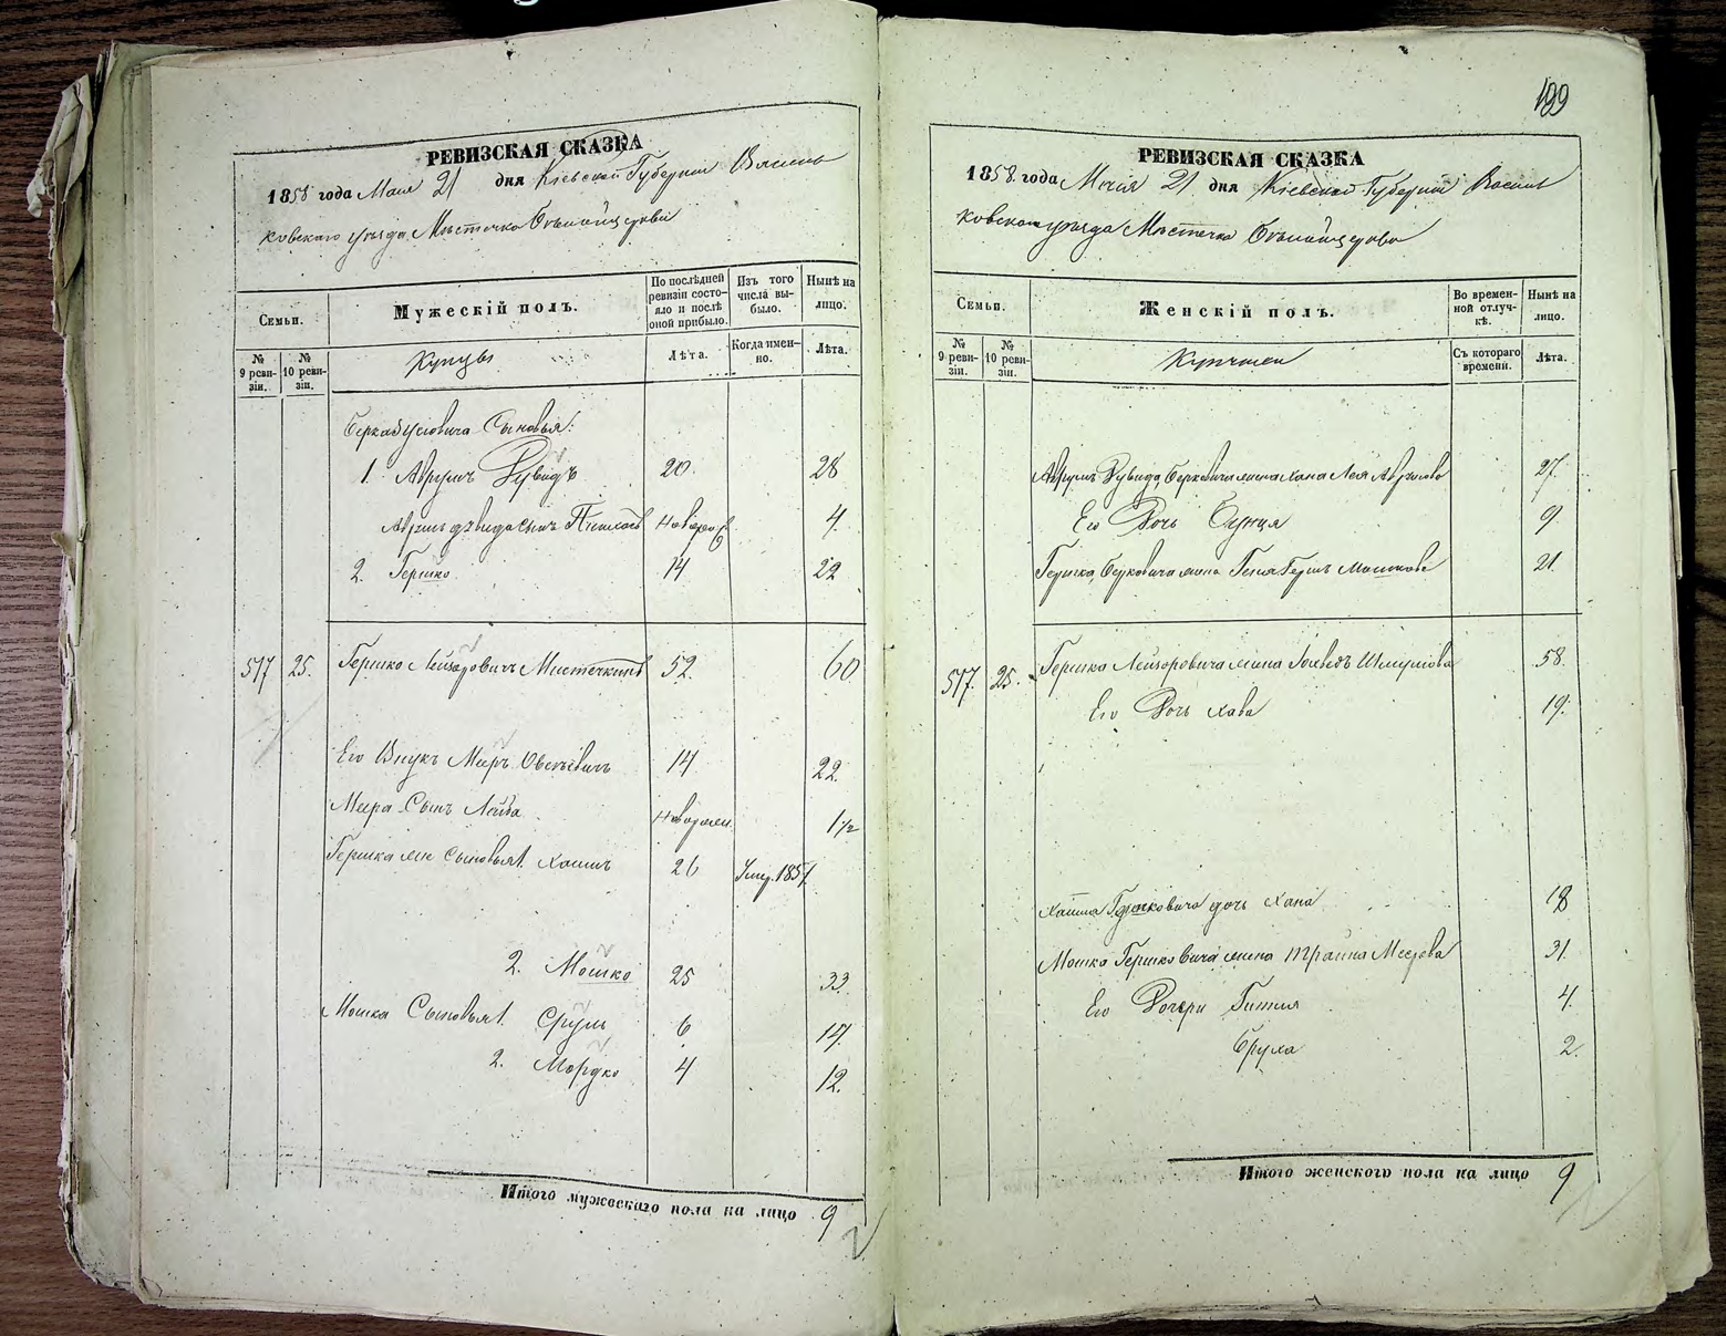 РЕВИЗСКАЯ СКАЗКА
1858 года Мая 21 дня Кіевской Губерніи Василь
ковскаго уѣзда Мѣстечко
Семьи.
Мужескій полъ.
По послѣдней ревизіи состояло и послѣ оной прибыло.
Изъ того числа выбыло.
Нынѣ на лицо.
№ 9 ревизіи.
№ 10 ревизіи.
Купцы
Лѣта.
Когда именно.
Лѣта.
Сыновья:
1. Аврумъ Дувидъ 20. 28
Аврумъ Дувида сынъ новорож 4.
2. Гершко 14 22
517 25. Гершко Лейзоровичъ Местечкинъ 52. 60
Его Внукъ Меръ Овсѣевичъ 14 22.
Меера Сынъ Лейба новорожен. 1 1/2
Гершка Сыновья 1. Хаимъ 26 Умер. 1857
2. Мошко 25 33.
Мошка Сыновья 1. Сруль 6 14.
2. Мордко 4 12.
Итого мужескаго пола на лицо 9
199
РЕВИЗСКАЯ СКАЗКА
1858. года Маія 21 дня Кіевской Губерніи Василь
ковскаго уѣзда Мѣстечка
Семьи.
Женскій полъ.
Во временной отлучкѣ.
Нынѣ на лицо.
№ 9 ревизіи.
№ 10 ревизіи.
Съ котораго времени.
Лѣта.
Аврумъ Дувида Берковича жена Хана Лея 27.
Его Дочь 9
Гершка Берковича жена 21.
517. 25. Гершка Лейзоровича жена Шмулова 58.
Его Дочь Хава 19.
Хаима Гершковича дочь Хана 18
Мошка Гершковича жена Трайна Меерова 31.
Его Дочери Гитля 4.
Бруха 2.
Итого женскаго пола на лицо 9